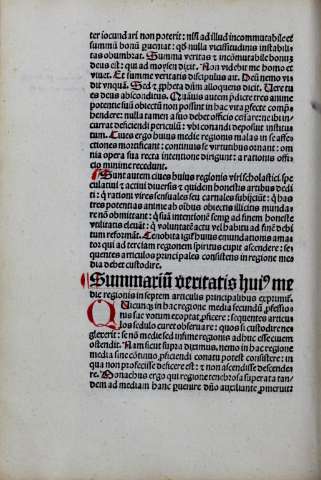 ter iocundari non poterit: nisi ad illud incommutabile et
summū bonū ꝑueniat: qḋ nulla vicissitudinis instabilis
tas obumbrat. Summa veritas ⁊ incōmutabile bonuȝ
deus est: qui ad moysen dixit. Non videbit me homo et
viuet. Et summe veritatis discipulus ait. Deū nemo vi
dit vnquā. Sed ⁊ ꝓpheta dn̄m alloquens dicit. Vere tu
es deus absconditus. Quāuis autem p̄dicte tres anime
potentie suū obiectū non possint in hac vita ꝓfecte comp̄
hendere: nulla tamen a suo debet officio cessare: ne ibi in
currat deficiendi periculū: vbi conandi deposuit institu
tum. Ciues ergo huius medie regionis malas in se affe
ctiones mortificant: continuis se virtutibus ornant: om
nia opera sua recta intentione dirigunt: a rationis offi
cio minime recedunt.
Sunt autem ciues huius regionis viri scholastici. spe
culatiui ⁊ actiui diuersis ⁊ quidem honestis artibus dedi
ti: q̄ ration vires sensuales seu carnales subijciūt: q̄ has
tres potentias anime ab obiectis illicitis mundare
nō obmittant: q̄ suā intentionē semp ad finem honeste
vtilitatis eleuāt: q̄ voluntatē actu vel habitu ad finē debi
tum reformāt. Cenobita igit̄ huius emundationis amas
tor qui ad terciam regionem spiritus cupit ascendere: se
quentes articulos principales consistens in regione me
dia debet custodire.
Summariū veritatis huiꝰ me
die regionis in septem articulis principalibus exprimit̄.
Quicunqȝ in hac regione media secundū ꝓfessio
nis suę votum exoptat ꝓficere: sequentes articu
los sedulo curet obseruare: quos si custodire ne
glexerit: se nō medie sed infime regionis adhuc esse ciuem
ostendit. Nam sicut supra diximus, nemo in hac regione
media sine cōtinuo ꝓficiendi conatu potest consistere: in
qua non proficisse defecisse est: ⁊ non ascendisse descende
re. Monachus ergo qui regione tenebrosa superata tan
dem ad mediam hanc ꝑuenire dn̄o auxiliante ꝓmeruit